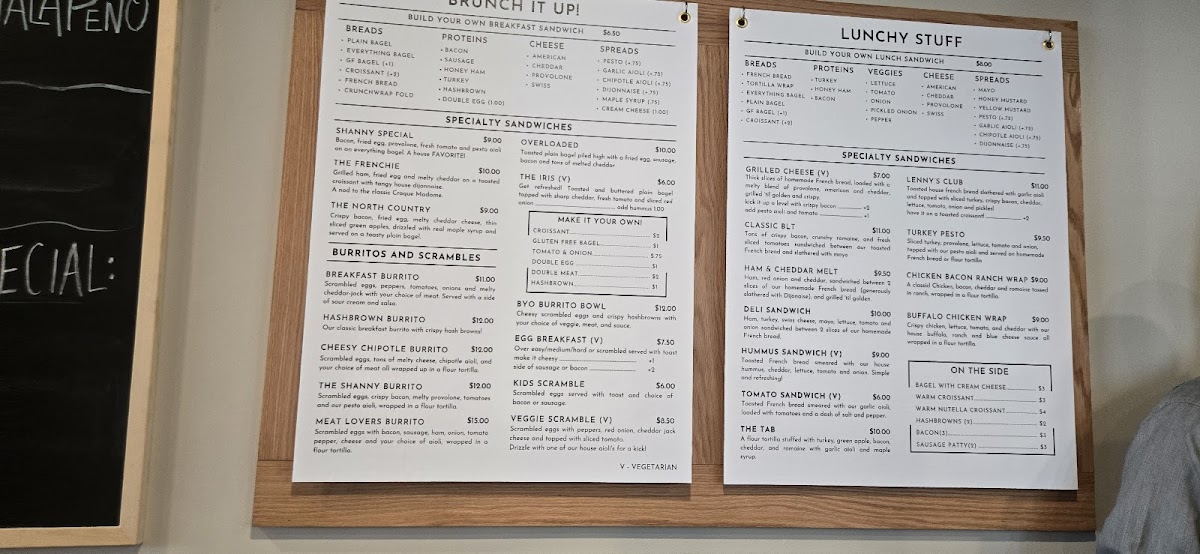 JALAPENO
ECIAL:
BRUNCH IT UP!
BUILD YOUR OWN BREAKFAST SANDWICH $6.50
BREADS
• PLAIN BAGEL
• EVERYTHING BAGEL
• GF BAGEL (+1)
• CROISSANT (+2)
• FRENCH BREAD
• CRUNCHWRAP FOLD
PROTEINS
• BACON
• SAUSAGE
• HONEY HAM
• TURKEY
• HASHBROWN
• DOUBLE EGG (1.00)
CHEESE
• AMERICAN
• CHEDDAR
• PROVOLONE
• SWISS
SPREADS
• PESTO (+.75)
• GARLIC AIOLI (+.75)
• CHIPOTLE AIOLI (+.75)
• DIJONNAISE (+.75)
• MAPLE SYRUP (.75)
• CREAM CHEESE (1.00)
SPECIALTY SANDWICHES
SHANNY SPECIAL $9.00
Bacon, fried egg, provolone, fresh tomato and pesto aioli
on an everything bagel. A house FAVORITE!
THE FRENCHIE $10.00
Grilled ham, fried egg and melty cheddar on a toasted
croissant with tangy house dijonnaise.
A nod to the classic Croque Madame.
THE NORTH COUNTRY $9.00
Crispy bacon, fried egg, melty cheddar cheese, thin
sliced green apples, drizzled with real maple syrup and
served on a toasty plain bagel.
BURRITOS AND SCRAMBLES
BREAKFAST BURRITO $11.00
Scrambled eggs, peppers, tomatoes, onions and melty
cheddar-jack with your choice of meat. Served with a side
of sour cream and salsa.
HASHBROWN BURRITO $12.00
Our classic breakfast burrito with crispy hash browns!
CHEESY CHIPOTLE BURRITO $12.00
Scrambled eggs, tons of melty cheese, chipotle aioli, and
your choice of meat all wrapped up in a flour tortilla.
THE SHANNY BURRITO $12.00
Scrambled eggs, crispy bacon, melty provolone, tomatoes
and our pesto aioli, wrapped in a flour tortilla.
MEAT LOVERS BURRITO $15.00
Scrambled eggs with bacon, sausage, ham, onion, tomato
pepper, cheese and your choice of aioli, wrapped in a
flour tortilla.
OVERLOADED $10.00
Toasted plain bagel piled high with a fried egg, sausage,
bacon and tons of melted cheddar
THE IRIS (V) $6.00
Get refreshed! Toasted and buttered plain bagel
topped with sharp cheddar, fresh tomato and sliced red
onion add hummus 1.00
MAKE IT YOUR OWN!
CROISSANT $2
GLUTEN FREE BAGEL $1
TOMATO & ONION $.75
DOUBLE EGG $1
DOUBLE MEAT $2
HASHBROWN $1
BYO BURRITO BOWL $12.00
Cheesy scrambled eggs and crispy hashbrowns with
your choice of veggie, meat, and sauce.
EGG BREAKFAST (V) $7.50
Over easy/medium/hard or scrambled served with toast
make it cheesy +1
side of sausage or bacon +2
KIDS SCRAMBLE $6.00
Scrambled eggs served with toast and choice of
bacon or sausage.
VEGGIE SCRAMBLE (V) $8.50
Scrambled eggs with peppers, red onion, cheddar jack
cheese and topped with sliced tomato.
Drizzle with one of our house aioli's for a kick!
V - VEGETARIAN
LUNCHY STUFF
BUILD YOUR OWN LUNCH SANDWICH $8.00
BREADS
• FRENCH BREAD
• TORTILLA WRAP
• EVERYTHING BAGEL
• PLAIN BAGEL
• GF BAGEL (+1)
• CROISSANT (+2)
PROTEINS
• TURKEY
• HONEY HAM
• BACON
VEGGIES
• LETTUCE
• TOMATO
• ONION
• PICKLED ONION
• PEPPER
CHEESE
• AMERICAN
• CHEDDAR
• PROVOLONE
• SWISS
SPREADS
• MAYO
• HONEY MUSTARD
• YELLOW MUSTARD
• PESTO (+.75)
• GARLIC AIOLI (+.75)
• CHIPOTLE AIOLI (+.75)
• DIJONNAISE (+.75)
SPECIALTY SANDWICHES
GRILLED CHEESE (V) $7.00
Thick slices of homemade French bread, loaded with a
melty blend of provolone, american and cheddar,
grilled 'til golden and crispy.
kick it up a level with crispy bacon +2
add pesto aioli and tomato +1
CLASSIC BLT $11.00
Tons of crispy bacon, crunchy romaine, and fresh
sliced tomatoes sandwiched between our toasted
French bread and slathered with mayo
HAM & CHEDDAR MELT $9.50
Ham, red onion and cheddar, sandwiched between 2
slices of our homemade French bread (generously
slathered with Dijonaise), and grilled 'til golden.
DELI SANDWICH $10.00
Ham, turkey, swiss cheese, mayo, lettuce, tomato and
onion sandwiched between 2 slices of our homemade
French bread.
HUMMUS SANDWICH (V) $9.00
Toasted French bread smeared with our house
hummus, cheddar, lettuce, tomato and onion. Simple
and refreshing!
TOMATO SANDWICH (V) $6.00
Toasted French bread smeared with our garlic aioli,
loaded with tomatoes and a dash of salt and pepper.
THE TAB $10.00
A flour tortilla stuffed with turkey, green apple, bacon,
cheddar, and romaine with garlic aioli and maple
syrup.
LENNY'S CLUB $11.00
Toasted house french bread slathered with garlic aioli
and topped with sliced turkey, crispy bacon, cheddar,
lettuce, tomato, onion and pickles!
have it on a toasted croissant! +2
TURKEY PESTO $9.50
Sliced turkey, provolone, lettuce, tomato and onion,
topped with our pesto aioli and served on homemade
French bread or flour tortilla
CHICKEN BACON RANCH WRAP $9.00
A classic! Chicken, bacon, cheddar and romaine tossed
in ranch, wrapped in a flour tortilla.
BUFFALO CHICKEN WRAP $9.00
Crispy chicken, lettuce, tomato, and cheddar with our
house buffalo, ranch and blue cheese sauce all
wrapped in a flour tortilla.
ON THE SIDE
BAGEL WITH CREAM CHEESE $3
WARM CROISSANT $3
WARM NUTELLA CROISSANT $4
HASHBROWNS (2) $2
BACON(3) $3
SAUSAGE PATTY(2) $3